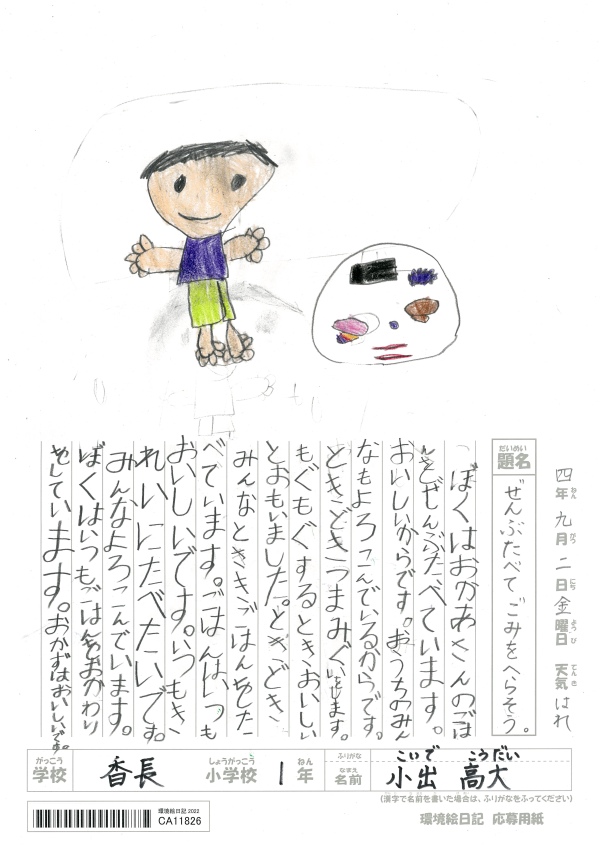 四年 九月 二日 金曜日 天気 はれ
ねん がつ にち ようび てんき
だいめい
題名 ぜんぶたべてごみをへらそう。
ぼくはおかあさんのごは
んをぜんぶたべています。
おいしいからです。おうちのみん
なもよろこんでいるからです。
ときどきつまみぐいします。
もぐもぐするときおいしい
とおもいました。ときどき
みんなとききごはんをた
べています。ごはんはいつも
おいしいです。いつもき
れいにたべたいです。
みんなよろこんでいます。
ぼくはいつもごはんをおかわり
をしています。おかずはおいしいです。
がっこう しょうがっこう ねん ふりがな こいで こうだい
学校 香長 小学校 1年 なまえ 名前 小出 高大
(漢字で名前を書いた場合は、ふりがなをふってください)
環境絵日記 2022
CA11826
環境絵日記 応募用紙